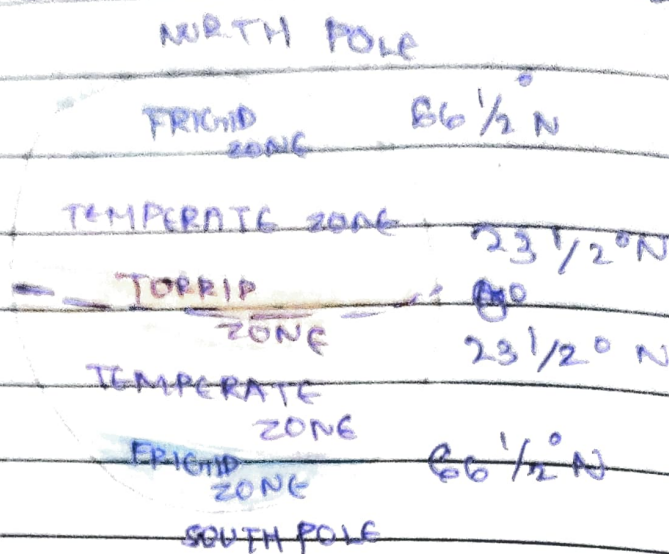 NORTH POLE
FRIGID 66 1/2° N
ZONE
TEMPERATE ZONE
23 1/2° N
TORRID 0
ZONE
23 1/2° N
TEMPERATE
ZONE
FRIGID 66 1/2° N
ZONE
SOUTH POLE